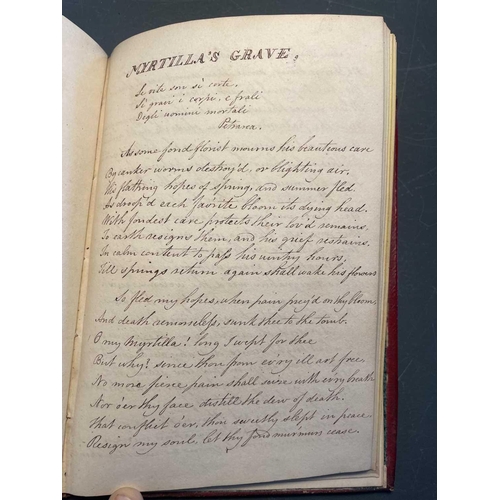 MYRTILLA'S GRAVE.
Se vite son sì corte,
Si gravi i corpi, e frali
Degli uomini mortali
Petrarca.
As some fond florist mourns his beauteous care
By canker worms destroy'd, or blighting air,
His flatt'ring hopes of spring, and summer fled.
As droop'd each favorite bloom its dying head.
With fondest care protects their lov'd remains.
To earth resigns them, and his grief restrains.
In calm content to pass his wintry hours,
Till springs return again shall wake his flowers
So fled my hopes, when pain prey'd on thy bloom.
And death remorseless, sunk thee to the tomb.
O my Myrtilla! long I wept for thee
But why? since thou from ev'ry ill art free.
No more fierce pain shall with ev'ry breath
Nor o'er thy face distill the dew of death.
That conflict o'er, thou sweetly slept in peace
Resign my soul, let thy fond murmurs cease.